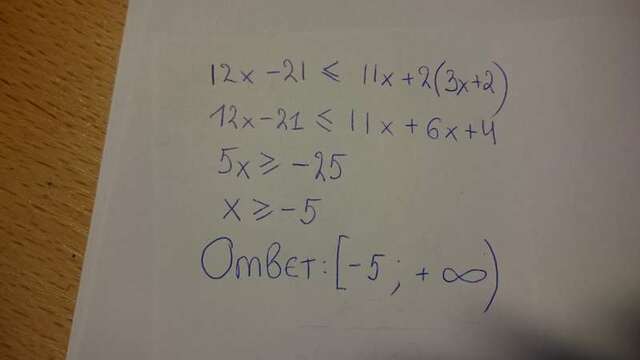 12x-21 ⩽ 11x+2(3x+2)
12x-21 ⩽ 11x+6x+4
5x ⩾ -25
x ⩾ -5
Ответ: [-5; +∞)